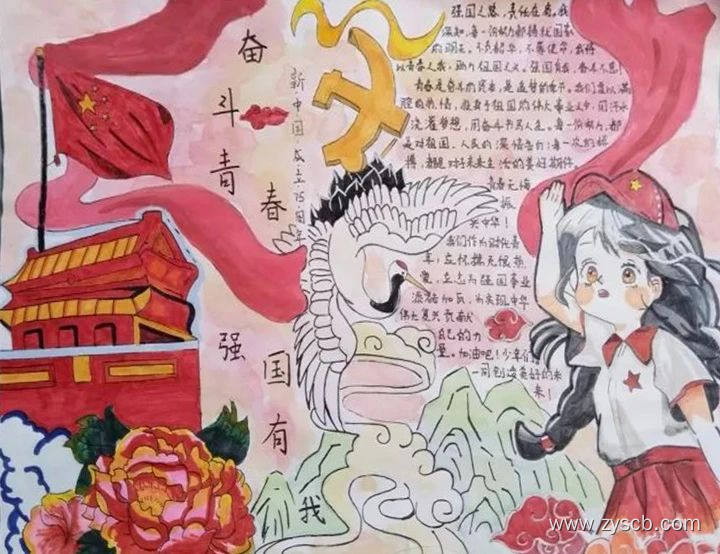 奋斗青春
强国有我
新中国成立75周年
强国之路，责任在肩。我
深知，每一份努力都铸就国家
的明天。不负韶华，不辱使命，我将
以青春之我，助力祖国之义。强国有我，奋斗不息！
青春是奋斗的
腔的热情，投身于祖国的伟大事业之中，用汗水
浇灌梦想，用奋斗书写人生。每一份努力，都
是对祖国、人民的深情告白；每一次的拼
搏，都是对未来生活的美好期许。
青春无悔
振
兴中华！
我们作为时代青
年，应怀揣无限热
爱，立志为强国事业
添砖加瓦，为实现中华
伟大复兴贡献
自己的力
量。加油吧！少年们，
一同创造美好的未
来！
www.zyscb.com